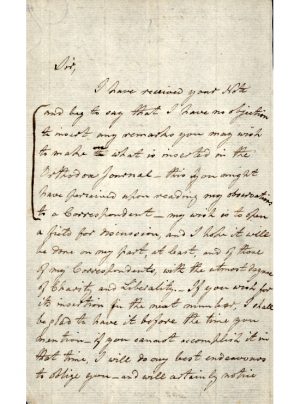 Sir,
I have received your Note
and beg to say that I have no objection
to insert any remarks you may wish
to make on what is inserted in the
Orthodox Journal - this you might
have perceived upon reading my observations
to a Correspondent - my wish is to open
a field for discussion, and I hope it will
be done on my part, at least, and of those
of my Correspondents, with the utmost degree
of Charity and Liberality - If you wish for
its insertion in the next number, I shall
be glad to have it before the time you
mention - if you cannot accomplish it in
that time, I will do my best endeavours
to oblige you - and will certainly notice